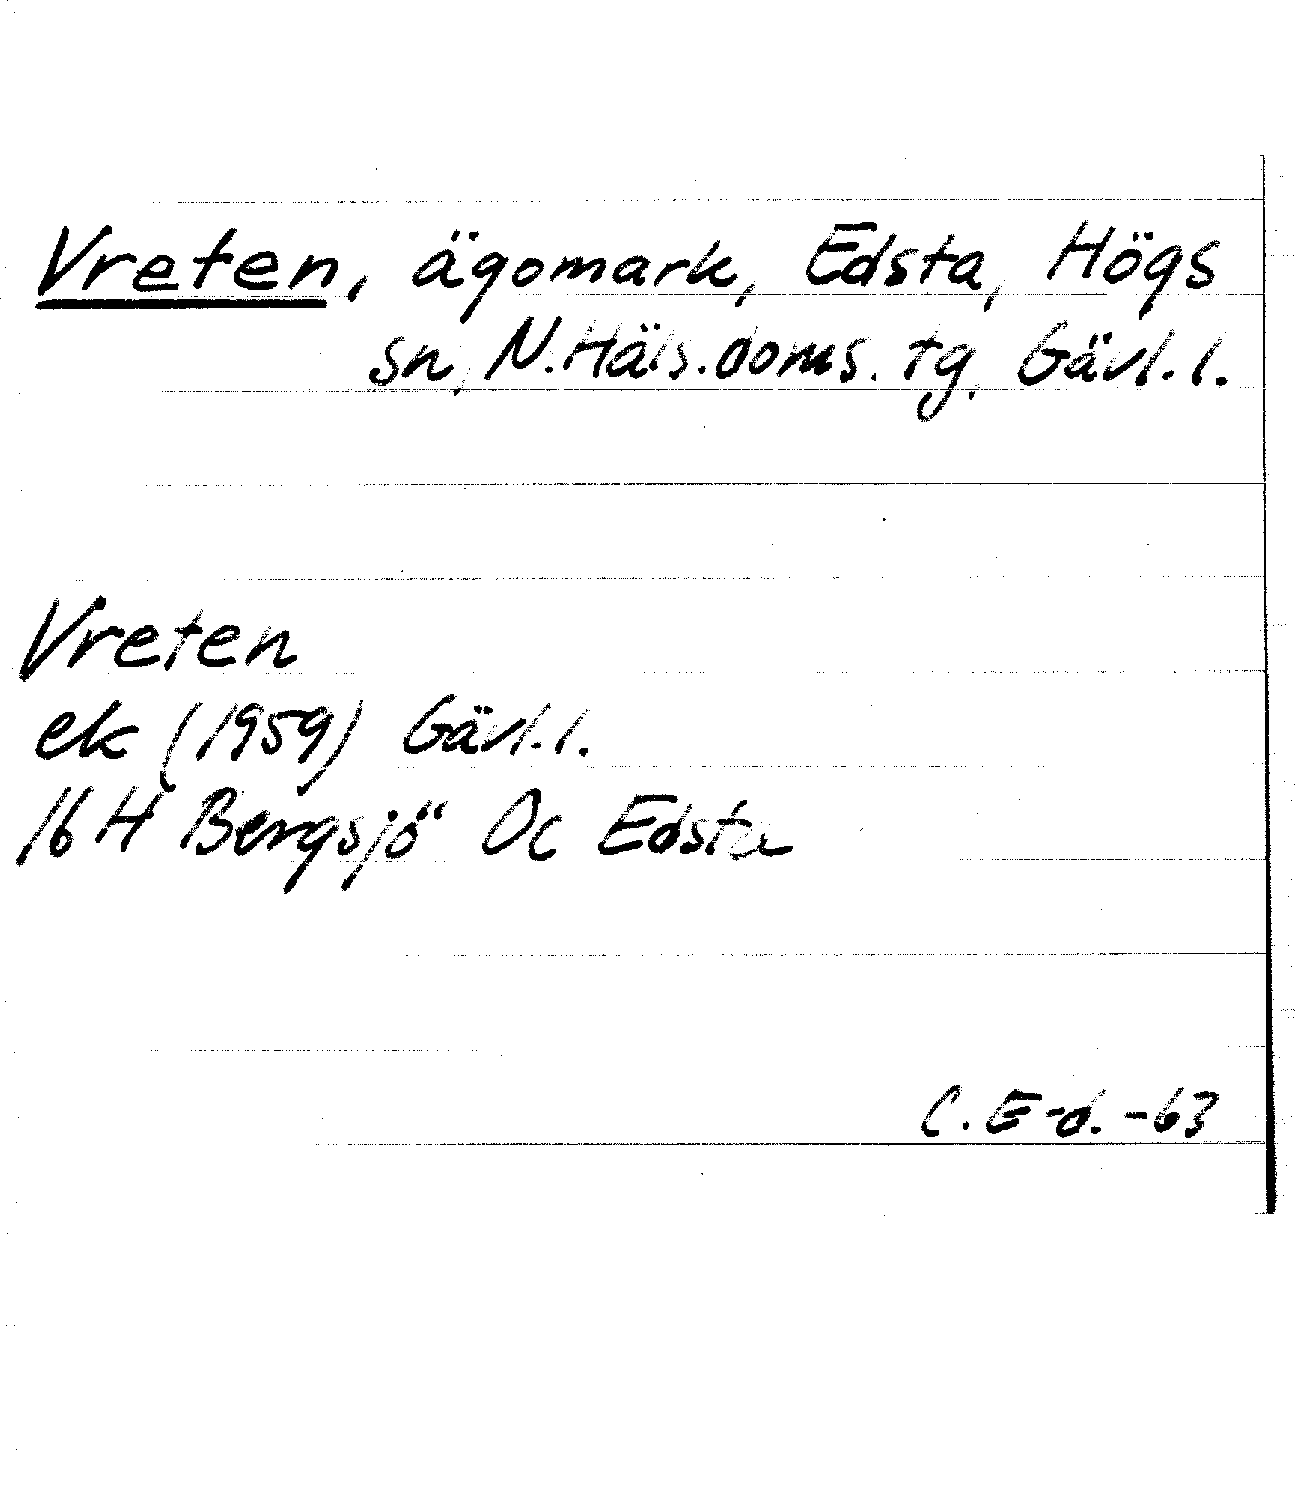 Vreten, ägomark, Edsta, Högs
sn, N.Häls.doms.tg, Gävl.l.
Vreten
ek (1959) Gävl.l.
16 H Bergsjö Oc Edsta
C. E-d. -63